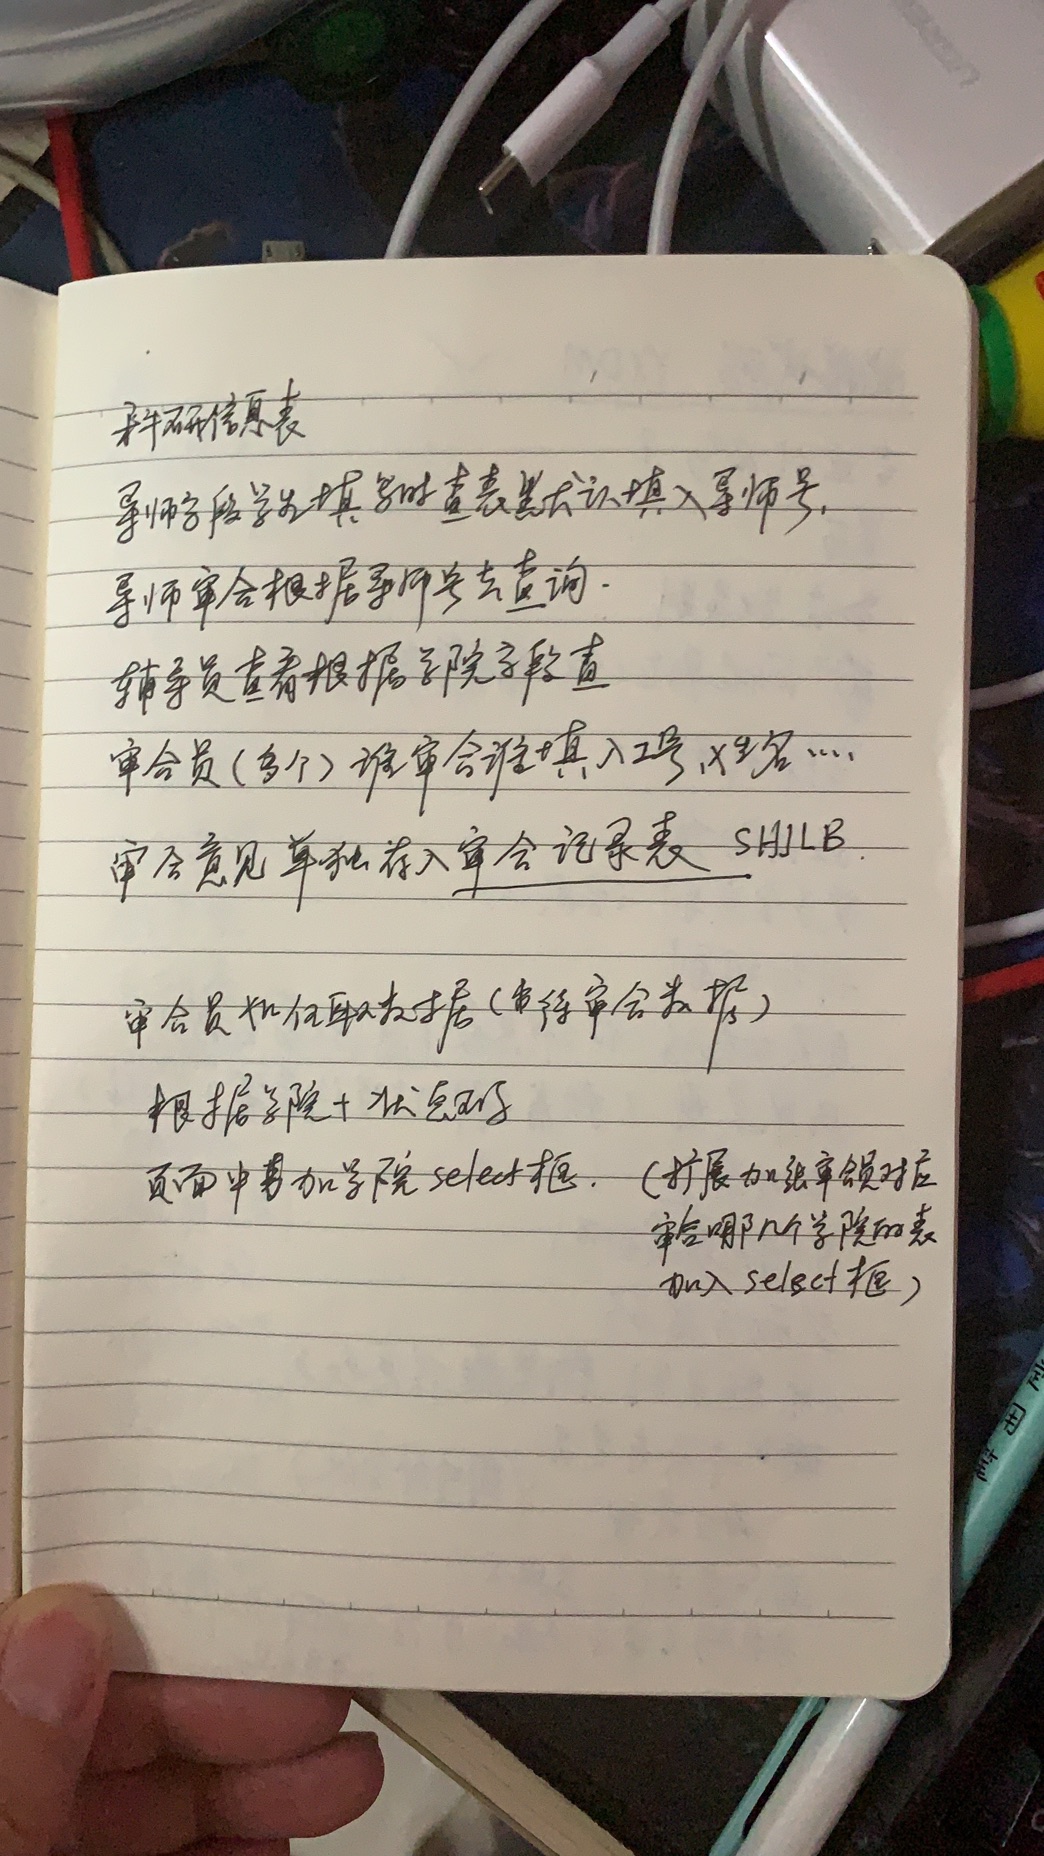 科研信息表
导师字段学生填写时查表默认填入导师号.
导师审合根据导师号去查询.
辅导员查看根据学院字段查
审合员(多个)谁审合谁填入工号,姓名....
审合意见单独存入审合记录表 SHJLB.
审合员如何取数据(待审合数据)
根据学院+状态码
页面中加学院select框. (扩展加张审合员对应
审合哪几个学院的表
加入select框)